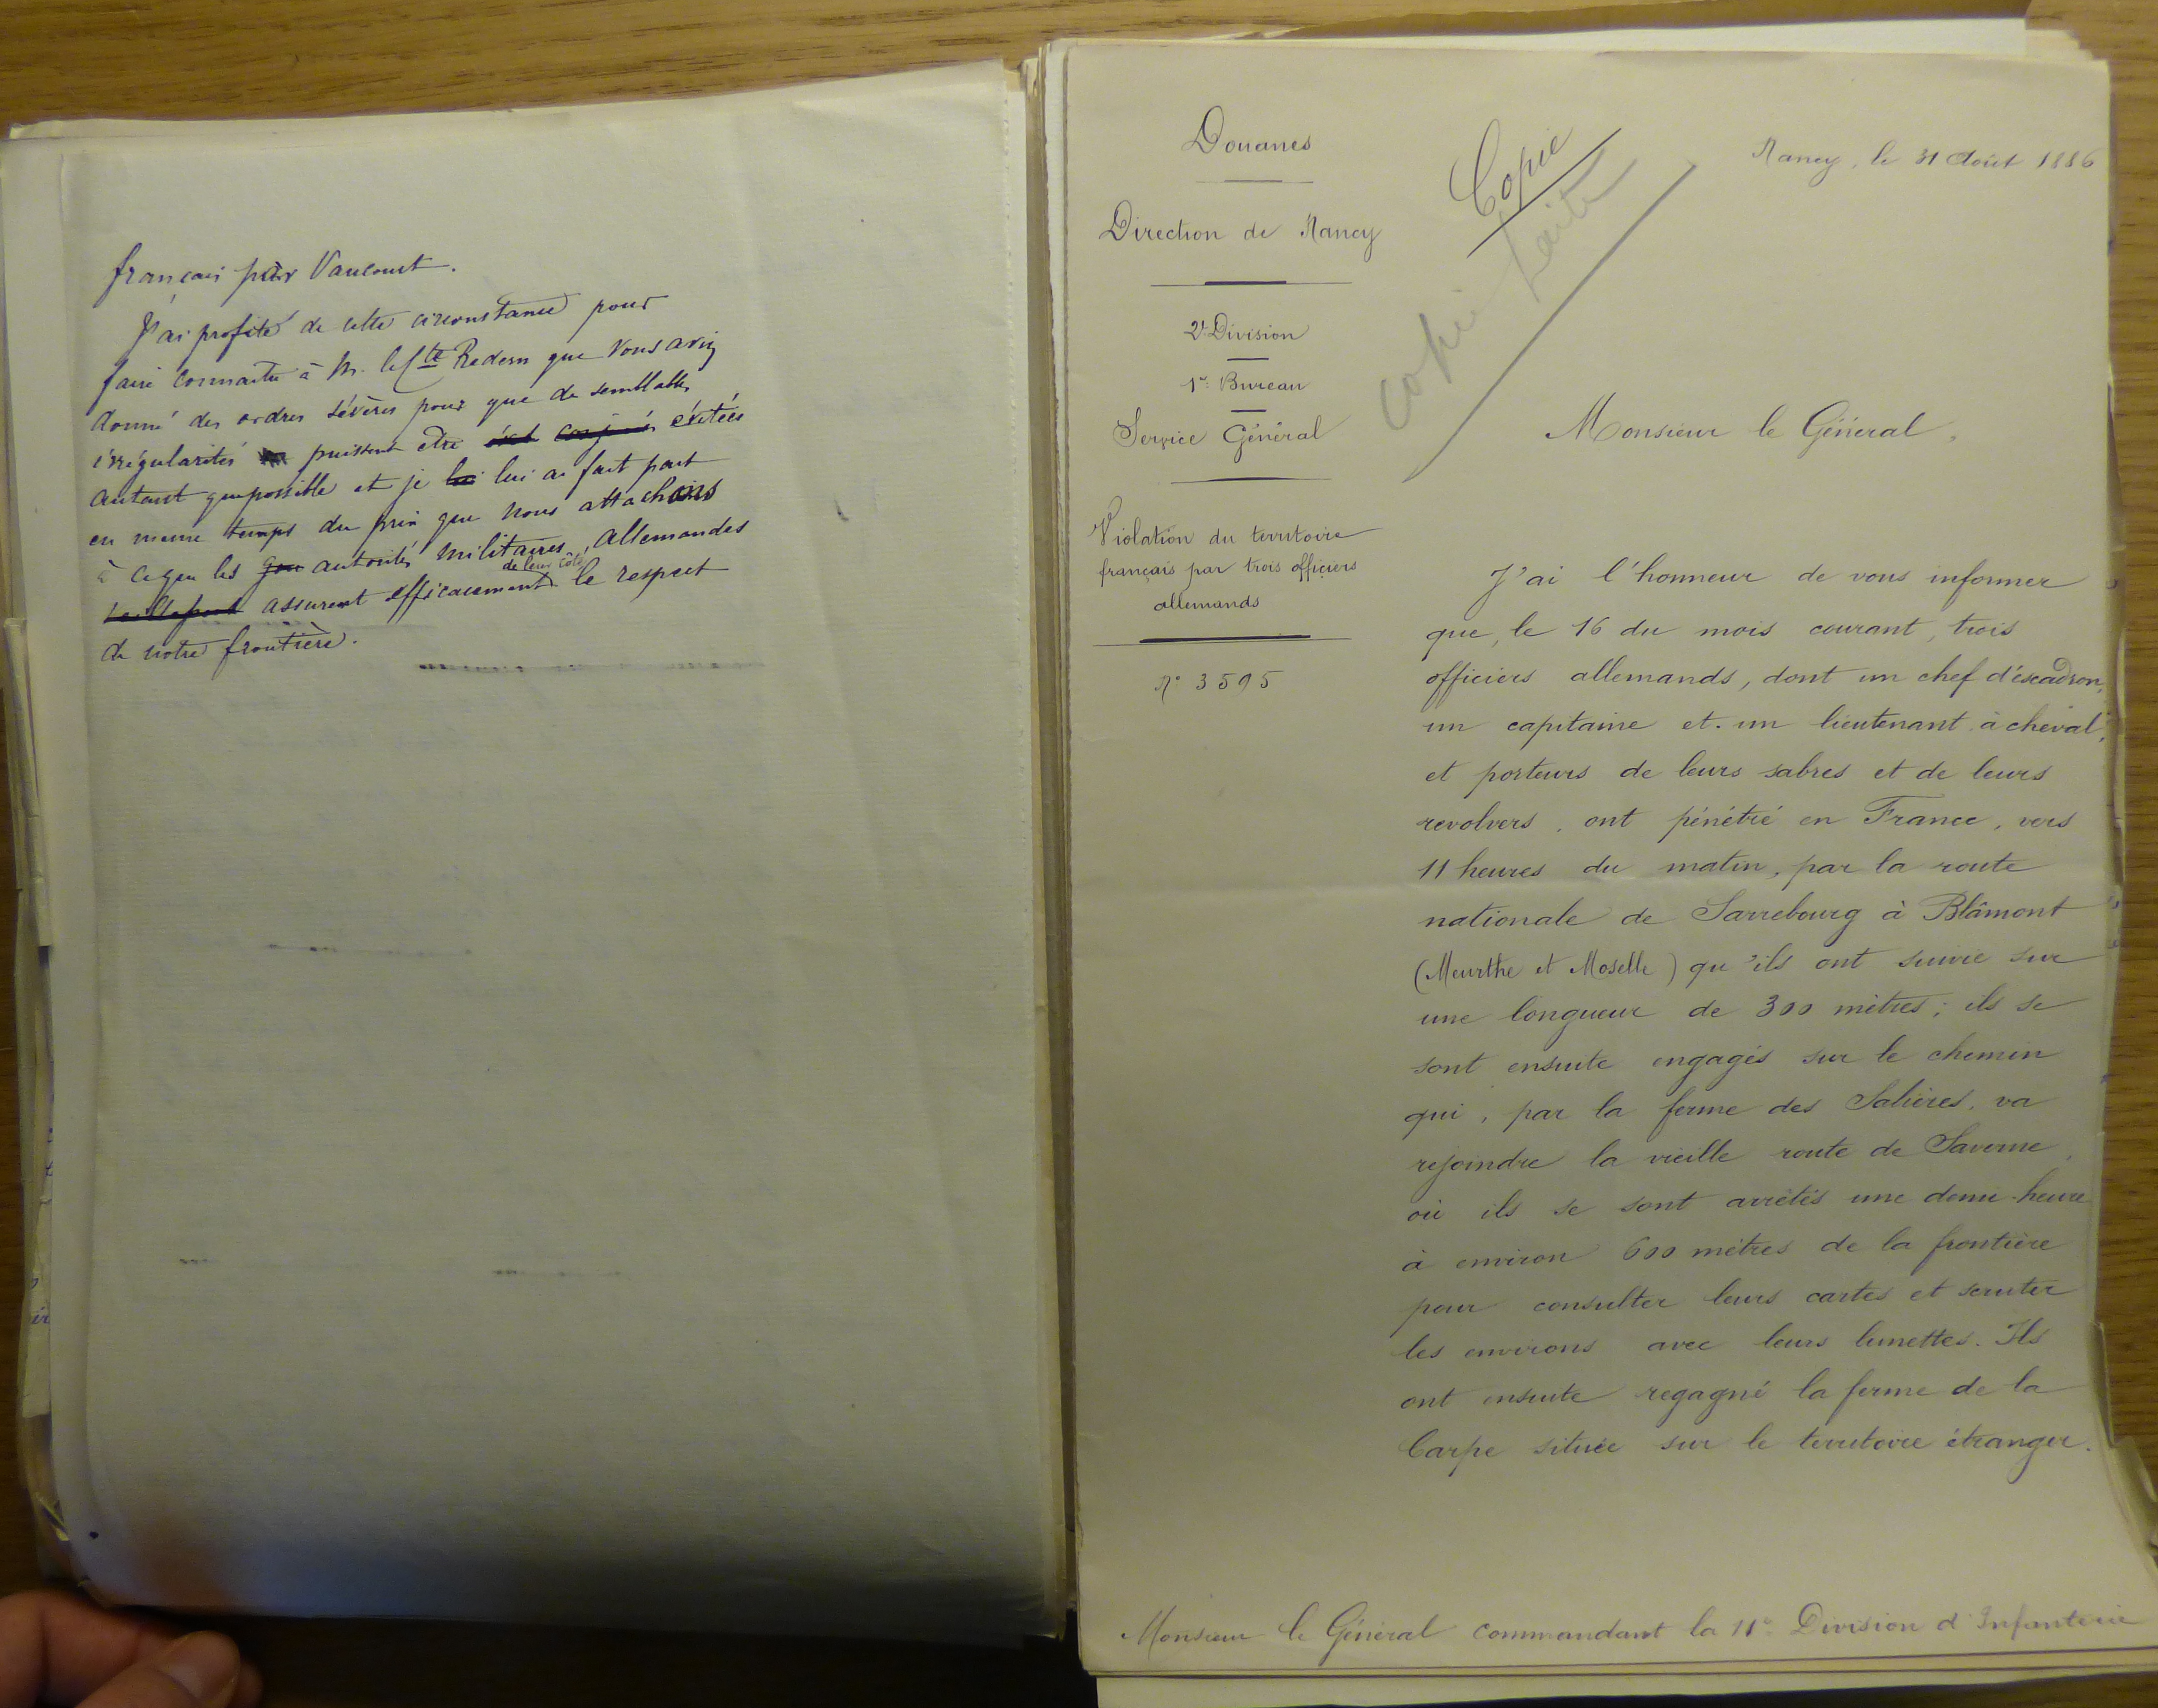 français par Vaucourt.
J'ai profité de cette circonstance pour
faire connaitre à M. le Cte Redern que Vous aviez
donné des ordres sévères pour que de semblables
irrégularités puissent etre évitées
autant que possible et je lui ai fait part
en meme temps du prix que nous attachons
à ce que les autorités militaires allemandes
de leur côté
assurent efficacement le respect
de notre frontière.
Douanes
Direction de Nancy
2e Division
1er Bureau
Service Général
Violation du territoire
français par trois officiers
allemands
N° 3595
Copie
copie faite
Nancy, le 31 Août 1886
Monsieur le Général,
J'ai l'honneur de vous informer
que, le 16 du mois courant, trois
officiers allemands, dont un chef d'éscadron,
un capitaine et un lieutenant à cheval,
et porteurs de leurs sabres et de leurs
revolvers, ont pénétré en France, vers
11 heures du matin, par la route
nationale de Sarrebourg à Blâmont
(Meurthe et Moselle) qu'ils ont suivie sur
une longueur de 300 mètres; ils se
sont ensuite engagés sur le chemin
qui, par la ferme des Salières, va
rejoindre la vieille route de Saverne,
où ils se sont arrêtés une demi-heure
à environ 600 mètres de la frontière
pour consulter leurs cartes et scruter
les environs avec leurs lunettes. Ils
ont ensuite regagné la ferme de la
Carpe située sur le territoire étranger.
Monsieur le Général commandant la 11e Division d'Infanterie